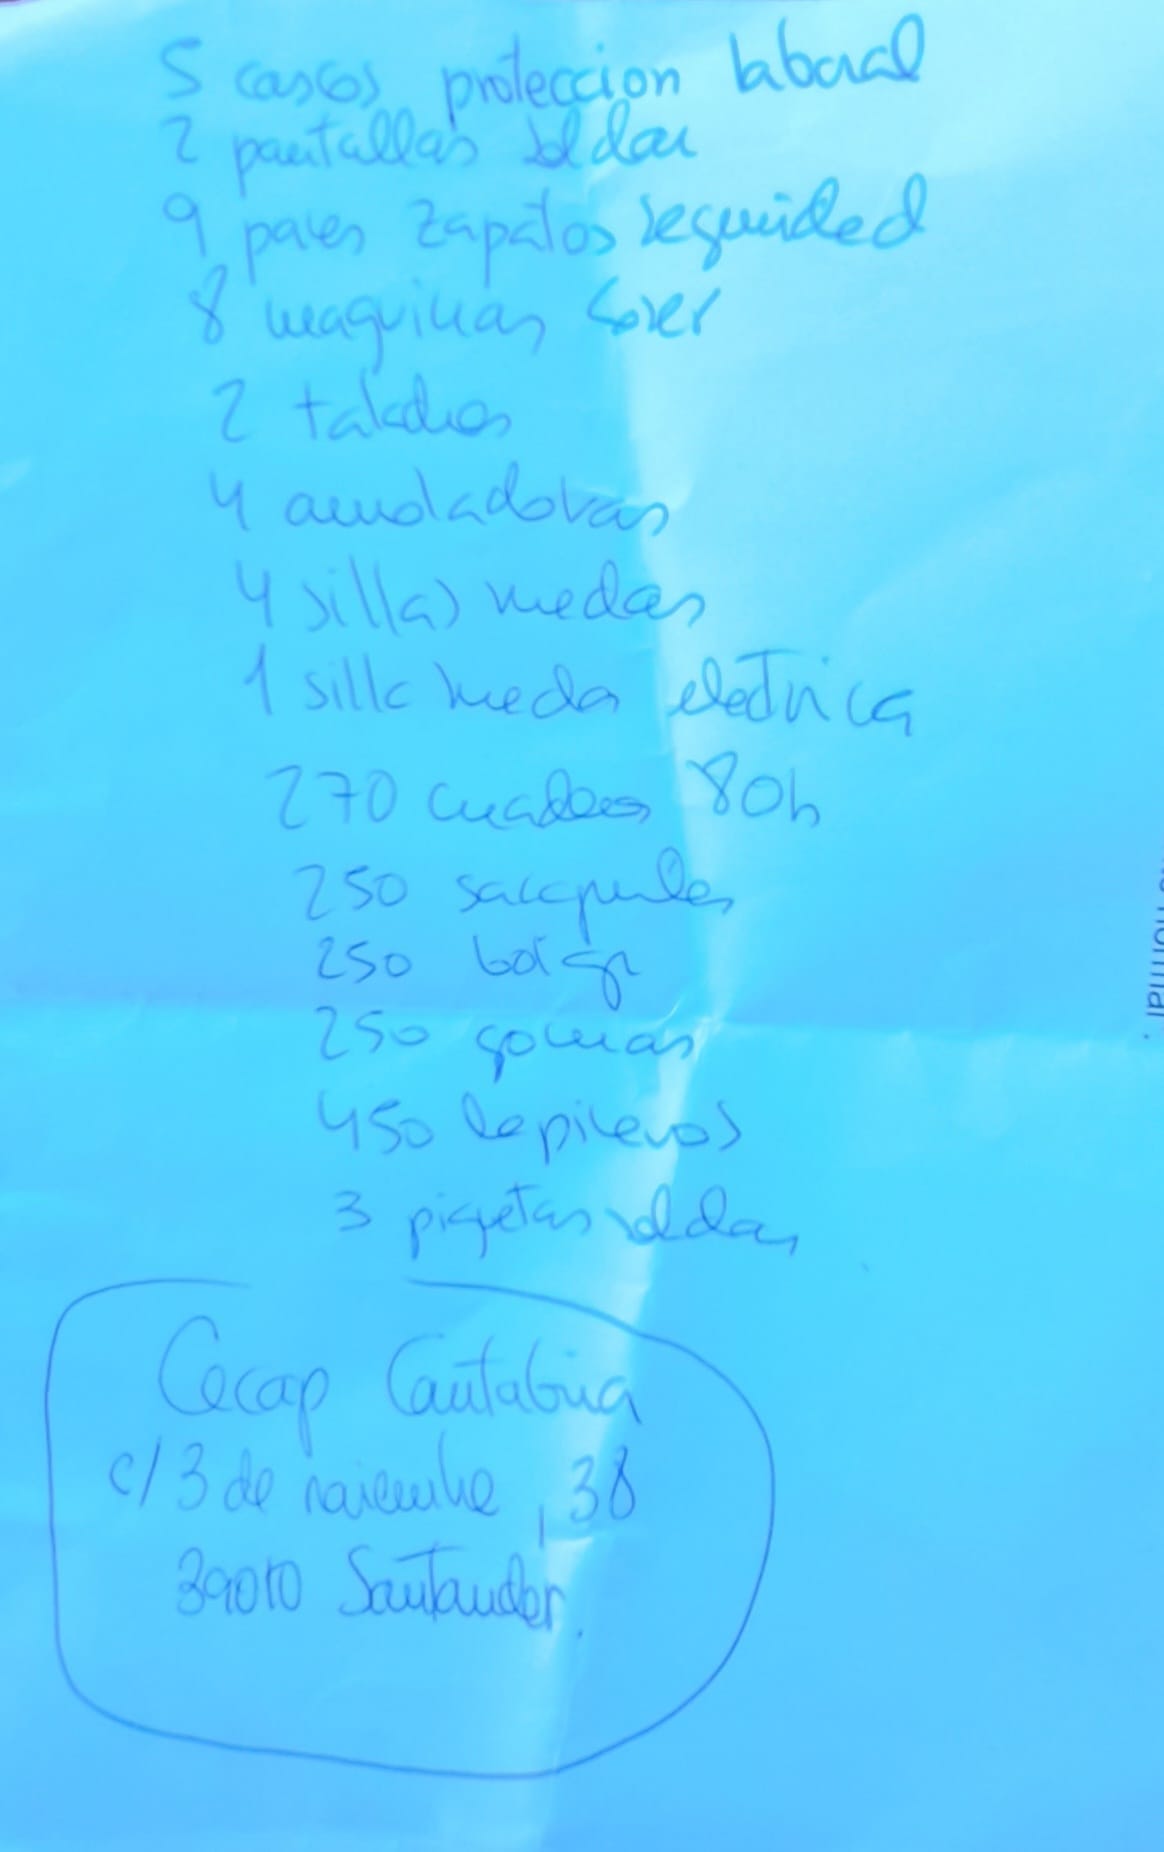 5 cascos proteccion laboral
2 pantallas soldar
9 pares zapatos seguridad
8 maquinas coser
2 taladros
4 amoladoras
4 sillas ruedas
1 silla ruedas electrica
270 cuadernos 80h
250 sacapuntas
250 boligr
250 gomas
450 lapiceros
3 piquetas soldar
Cecap Cantabria
c/ 3 de noviembre, 38
39010 Santander.
normal.